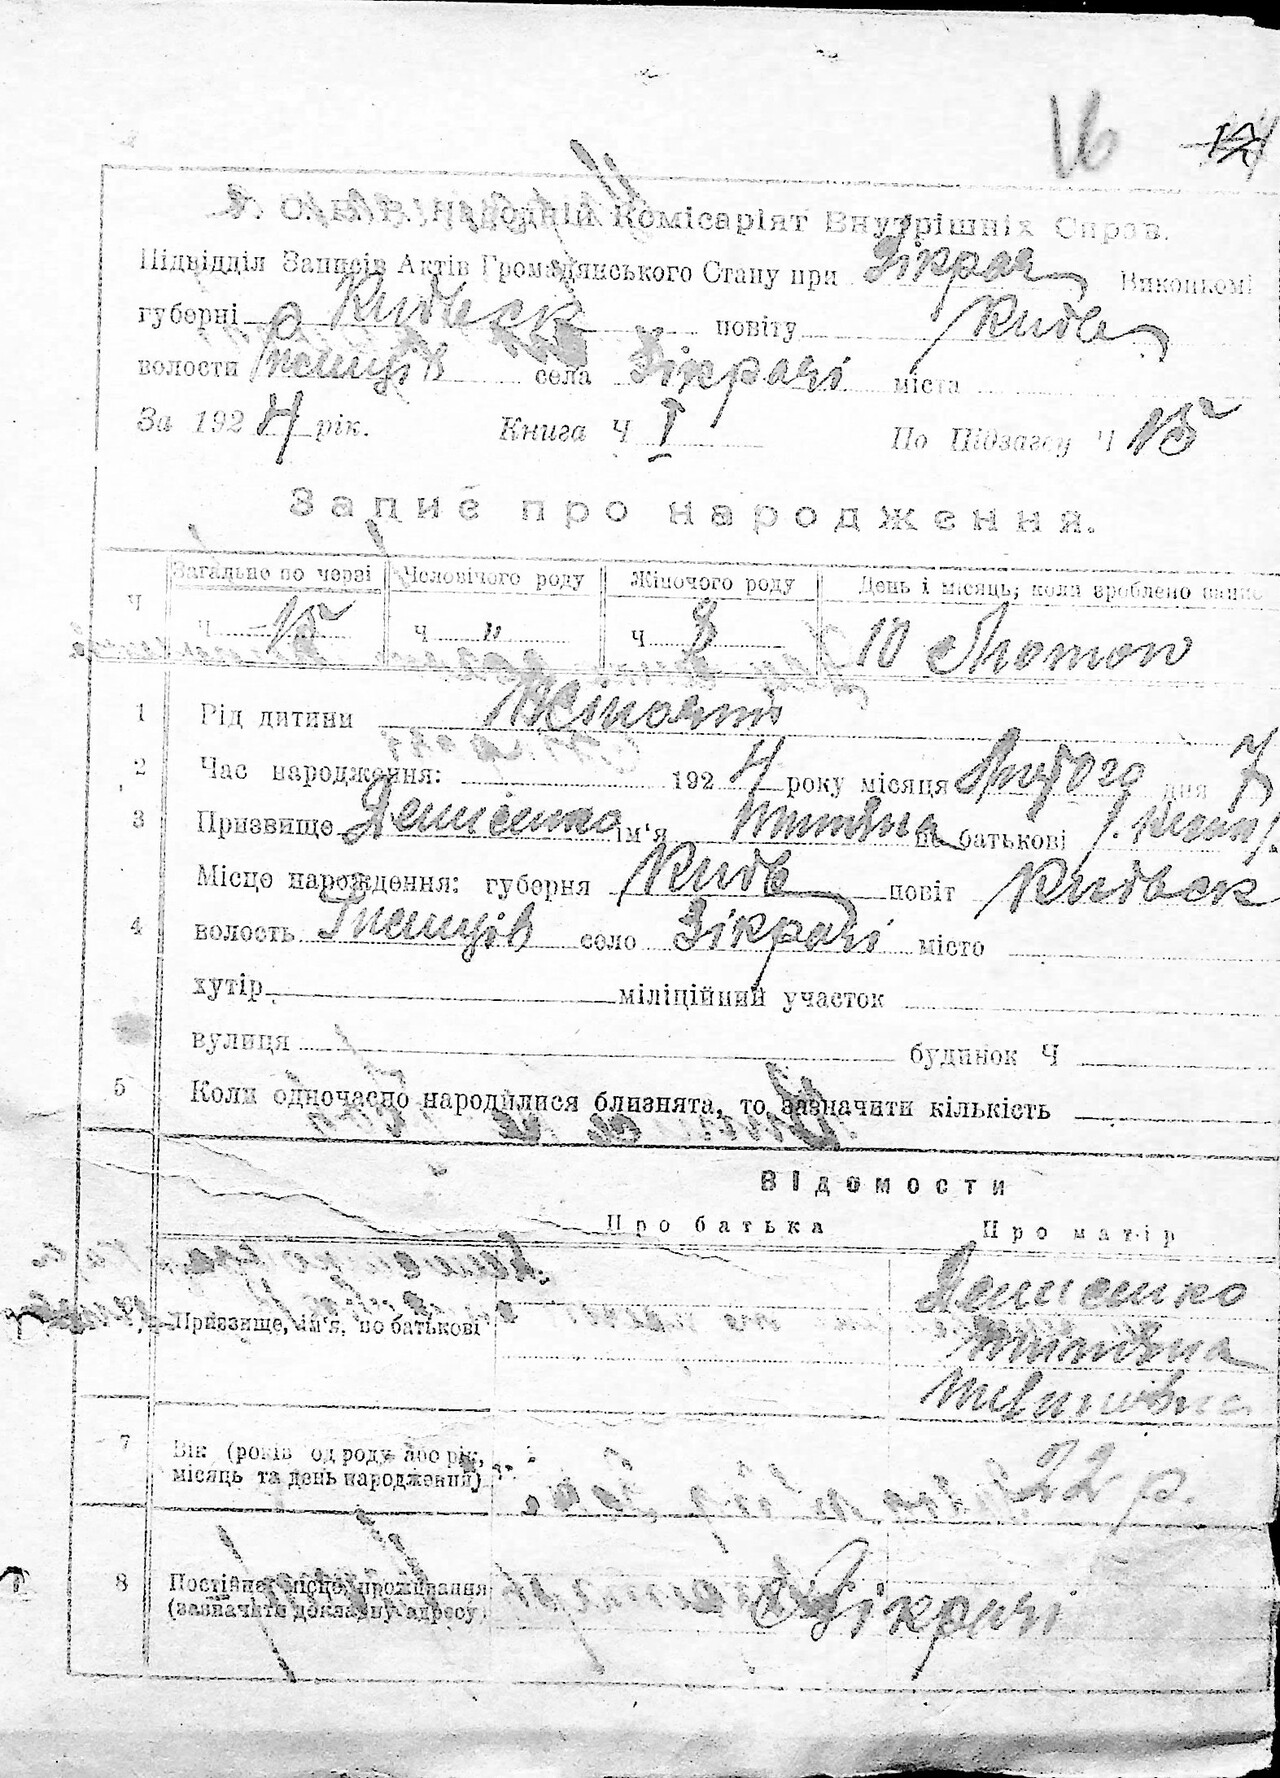 16
Народній Комісаріят Внутрішніх Справ.
Підвідділ Записів Актів Громадянського Стану при Зікрач Виконкомі
губерні Київськ повіту Київ
волости села Зікрачі міста
За 1924 рік. Книга Ч I По Підзагсу Ч 15
Запис про народження.
Загально по черзі Чоловічого роду Жіночого роду День і місяць, коли зроблено запис
Ч Ч 15 Ч " Ч 8 10 Лютого
1 Рід дитини Жіночий
2 Час народження: 1924 року місяця Лютого дня 7
3 Призвище Денисенко ім'я Тетяна по батькові
Місце народження: губерня Київ повіт Київськ
4 волость село Зікрачі місто
хутір міліційний участок
вулиця будинок Ч
5 Коли одночасно народилися близнята, то зазначити кількість
Відомости
Про батька Про матір
Призвище, ім'я, по батькові Денисенко
Тетяна
7 Вік (років од роду або рік, 22 р.
місяць та день народження)
8 Постійне місце проживання Зікрачі
(зазначити докладну адресу)